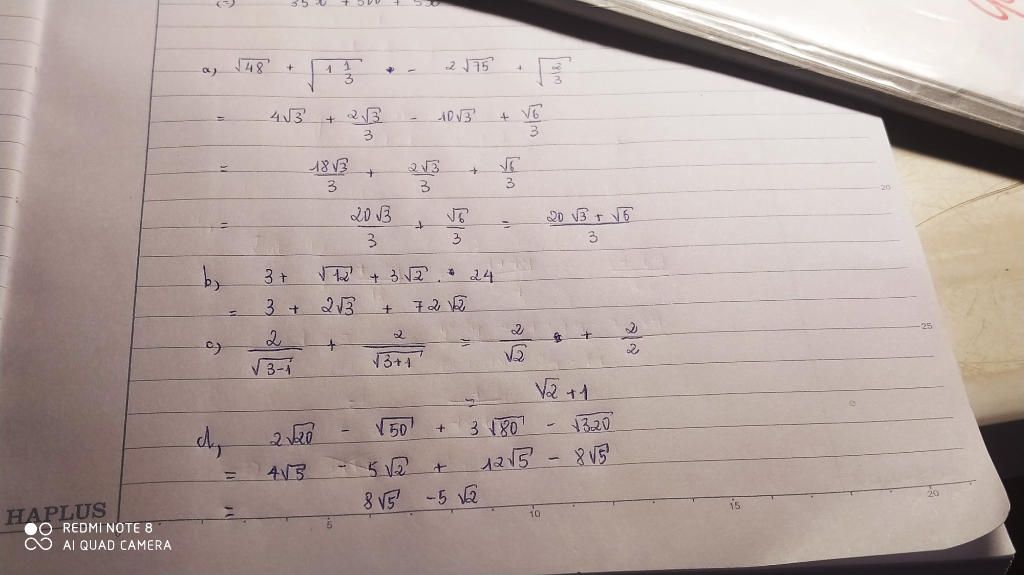 a, √48 + √(1 1/3) - 2√75 + √(2/3)
= 4√3 + 2√3/3 - 10√3 + √6/3
= 18√3/3 + 2√3/3 + √6/3
20
= 20√3/3 + √6/3 = (20√3 + √6)/3
b, 3 + √12 + 3√2 . 24
= 3 + 2√3 + 72√2
25
c) 2/√(3-1) + 2/√(3+1) = 2/√2 + 2/2
= √2 + 1
d, 2√20 - √50 + 3√80 - √320
= 4√5 - 5√2 + 12√5 - 8√5
= 8√5 - 5√2
HAPLUS
5 10 15 20
REDMI NOTE 8
AI QUAD CAMERA